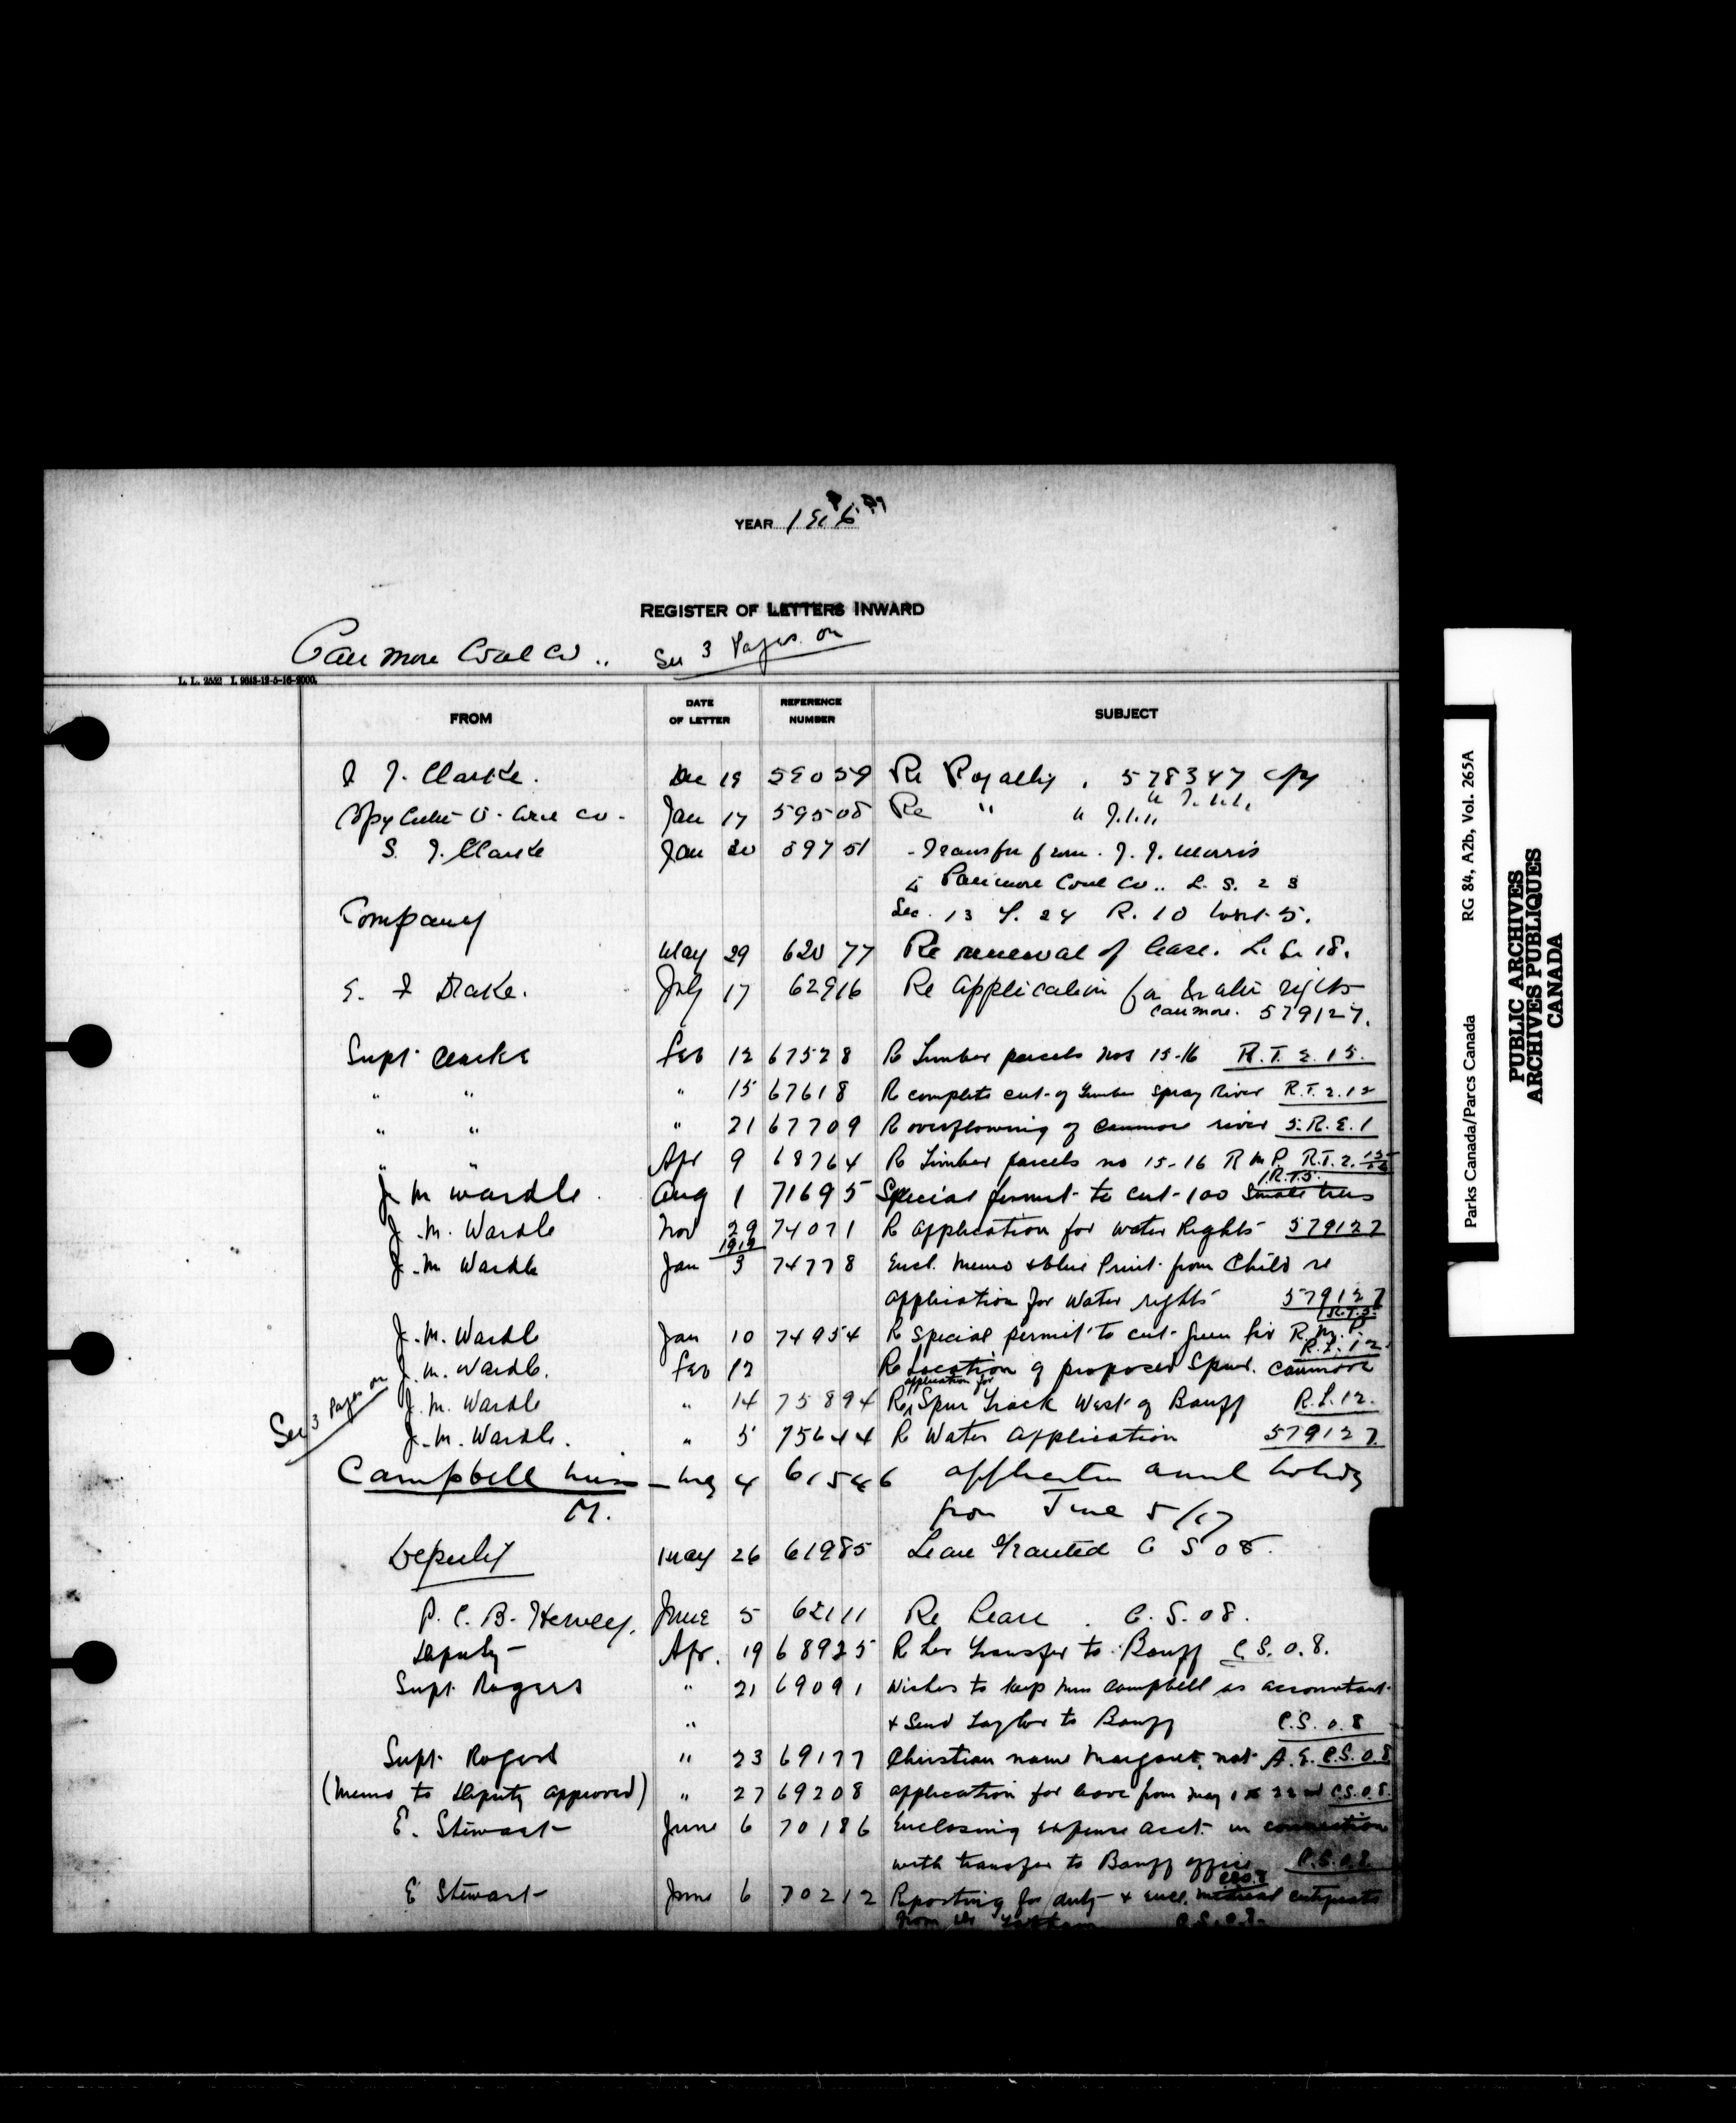 YEAR 1916
REGISTER OF LETTERS INWARD
Canmore Coal Co.. See 3 Pages on
L. L. 2552 I. 9848-12-5-16-2000.
FROM DATE OF LETTER REFERENCE NUMBER SUBJECT
J. Clarke. Dec 19 59059 Re Royalty. 578347 cpy
Copy Jan 17 59508 Re " "
S. J. Clarke Jan 20 59751 - Transfer from. J. J. Morris
to Canmore Coal Co.. L. S. 2 3
Sec. 13 T. 24 R. 10 West 5.
Company
May 29 62077 Re renewal of lease. 18.
Drake. July 17 62916 Re Application for Water rights
Canmore. 579127.
Supt Clarke Feb 12 67528 R Timber parcels nos 15-16 R.T. 2. 15.
" " " 15 67618 R complete cut of timber Spray River R.T. 2. 12
" " " 21 67709 R overflowing of Canmore river S.R.E. 1
" " Apr 9 68764 R Timber parcels no 15-16 R M P R.T. 2.
J M Wardle. Aug 1 71695 Special permit to cut 100 Small trees
J. M. Wardle Nov 29 74071 R application for Water Rights 579127
1919
J. M Wardle Jan 3 74778 Encl. Memo & blue Print from Child re
application for Water rights 579127
J. M. Wardle Jan 10 74954 R Special permit to cut green R. M. P
R.L. 12
J. M. Wardle. Feb 12 Re Location of proposed Spur. Canmore
application for
See 3 Pages on J. M. Wardle " 14 75894 Re Spur Track West of Banff R.L. 12.
J. M. Wardle. " 5 75644 R Water Application 579127
Campbell Miss 4 61546 application annual holiday
M. from June 5/17
Deputy May 26 61985 Leave Granted C S 08.
P. C. B. Hervey. June 5 62111 Re Leave. C. S. 08.
Deputy Apr. 19 68925 R her transfer to Banff C S. 0. 8.
Supt Rogers " 21 69091 Wishes to keep Miss Campbell as accountant
" & Send Taylor to Banff C.S. 0.8
Supt Rogers " 23 69177 Christian name Margaret, not A. E. C.S. 0.8
(Memo to Deputy approved) " 27 69208 application for leave from May 1 to 22nd C.S. 0.8.
E. Stewart June 6 70186 Enclosing expense acct in connection
with transfer to Banff office C.S. 0.8
E Stewart June 6 70212 Reporting for duty & encl. medical certificate
from Dr C.S. 0.8.
Parks Canada/Parcs Canada RG 84, A2b, Vol. 265A
PUBLIC ARCHIVES
ARCHIVES PUBLIQUES
CANADA